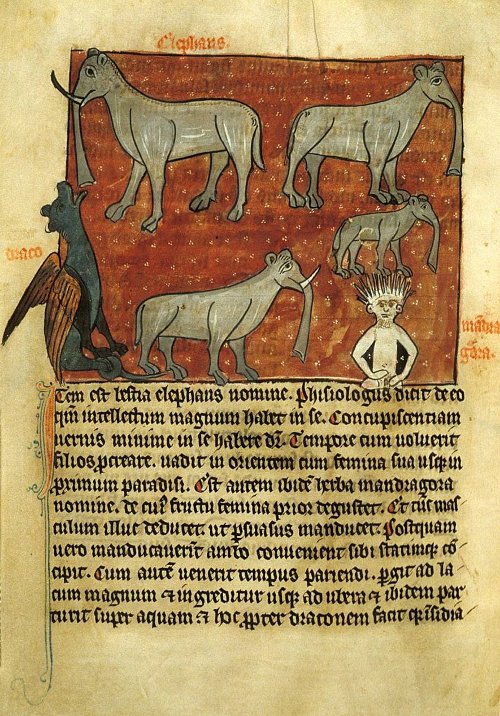 Elephans.
draco
mandra
gora.
Item est bestia elephans nomine. Phisiologus dicit de eo
qm̄ intellectum magnum habet in se. Concupiscentiam
uernis minime in se habere dr̄. Tempore cum uoluerit
filios ꝓcreare. uadit in orientem cum femina sua usq; in
primum paradisi. Est autem ibidē herba mandragora
nomine. de cuiꝰ fructu femina prior degustet. Et tūc mas
culum illuc deducet. ut ꝑsuasus manducet. Postquam
uero manducauerint ambo conuenient sibi statimq; cō
cipit. Cum autē uenerit tempus pariendi. ꝑgit ad la
cum magnum ⁊ ingreditur usq; ad ubera ⁊ ibidem par
turit super aquam ⁊ hoc ꝓpter draconem facit qr̄ insidia